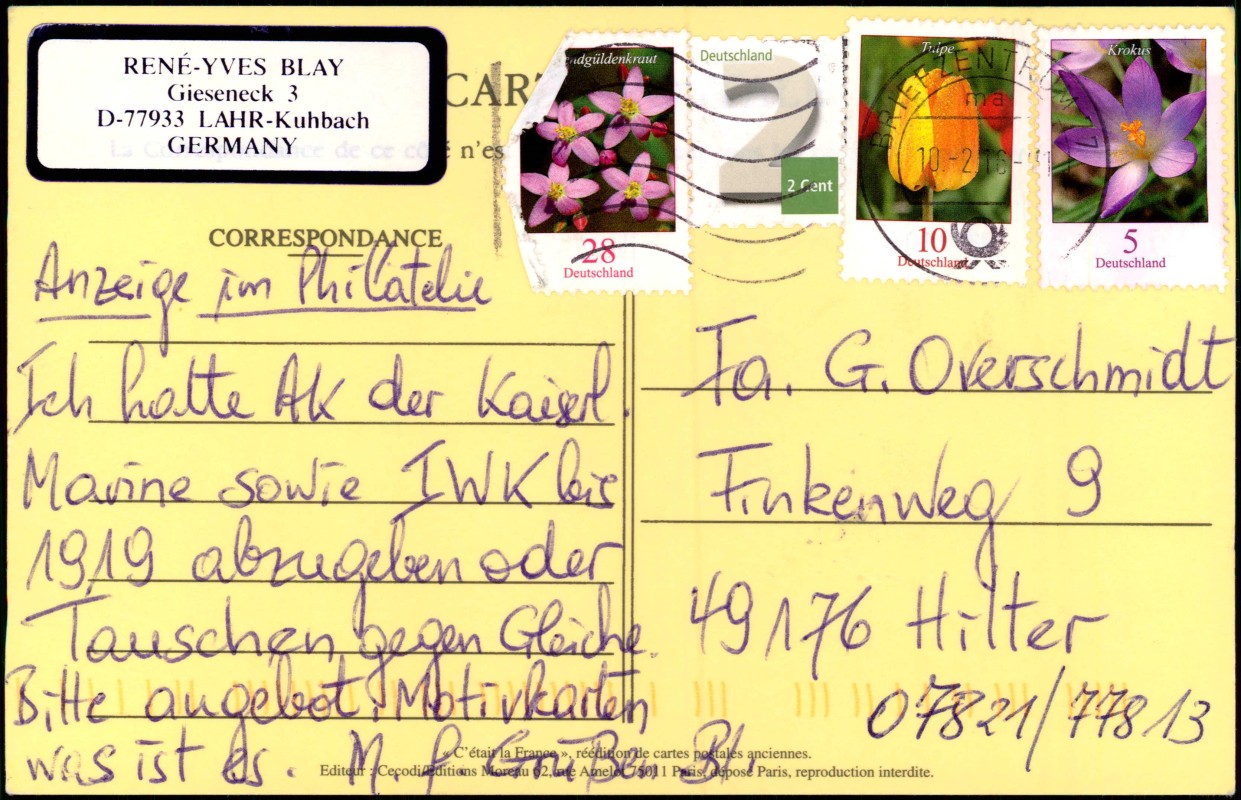 RENÉ-YVES BLAY
Gieseneck 3
D-77933 LAHR-Kuhbach
GERMANY
CAR
La Correspondance de ce côté n'es
endgüldenkraut
28
Deutschland
Deutschland
2
2 Cent
Tulpe
10
Deutschland
Krokus
5
Deutschland
BRIEFZENTRUM
ma
10.-2.16-
CORRESPONDANCE
Anzeige im Philatelie
Ich hatte AK der Kaiserl.
Marine sowie IWK bis
1919 abzugeben oder
Tauschen gegen Gleiche.
Bitte angebot. Motivkarten
was ist es. M. f Grüßen Bl.
Fa. G. Overschmidt
Finkenweg 9
49176 Hilter
07821/77813
« C'était la France », réédition de cartes postales anciennes.
Editeur : Cecodi/Editions Moreau 62, rue Amelot 75011 Paris, déposé Paris, reproduction interdite.